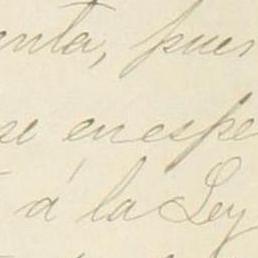 enta, pues
se en espe
á la Ley